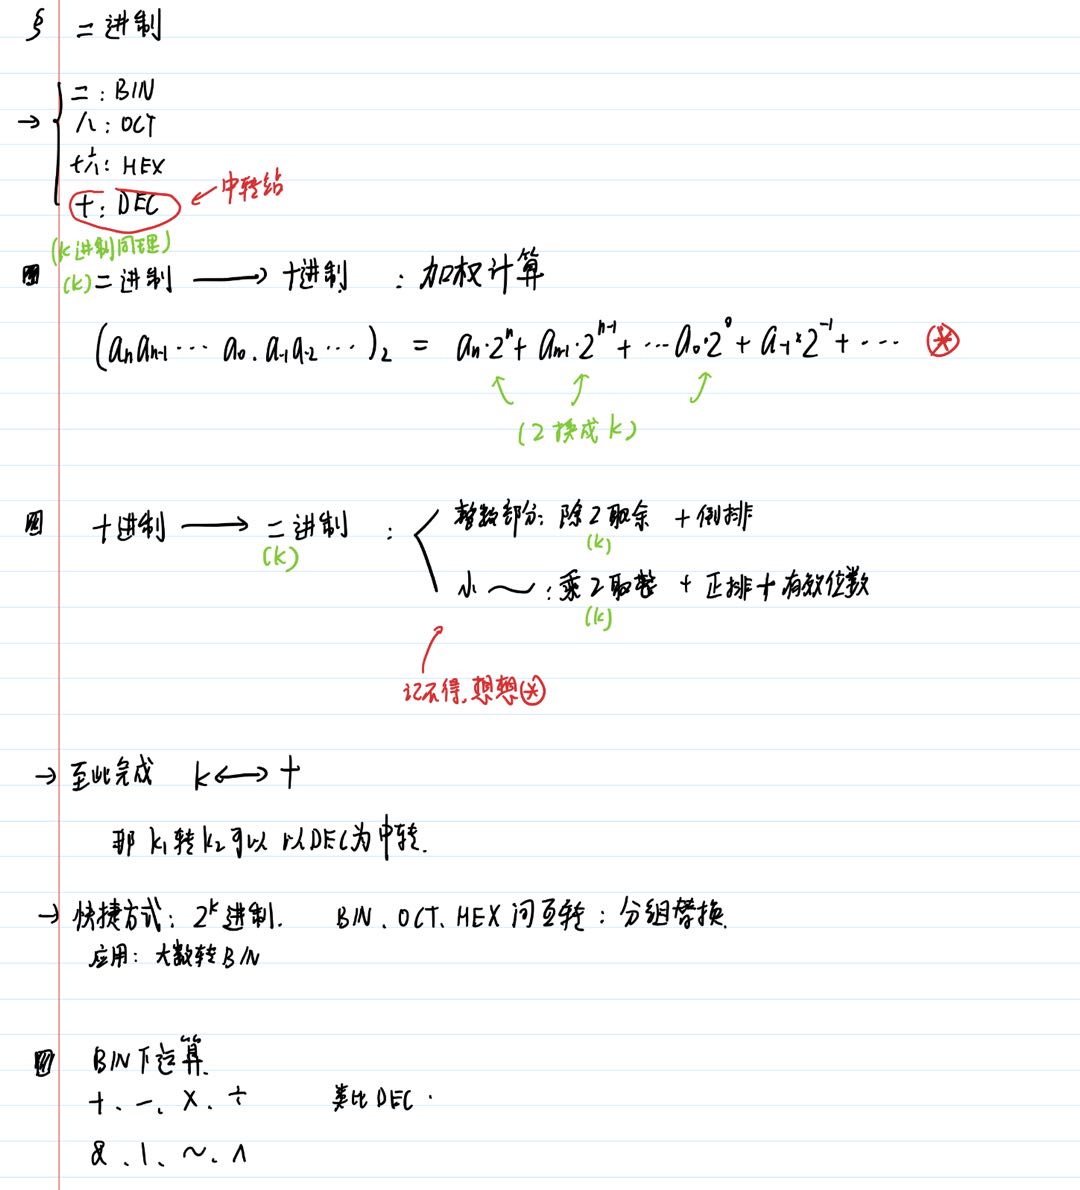 § 二进制
二：BIN
→ 八：OCT
十六：HEX
十：DEC ← 中转站
(k进制同理)
(k) 二进制 ⟶ 十进制 ：加权计算
(aₙaₙ₋₁⋯a₀.a₋₁a₋₂⋯)₂ = aₙ·2ⁿ + aₙ₋₁·2ⁿ⁻¹ + ⋯a₀·2⁰ + a₋₁·2⁻¹ + ⋯ ⊛
(2换成k)
整数部分：除2取余 + 倒排
(k)
十进制 ⟶ 二进制 ：
(k)
小～：乘2取整 + 正排 + 有效位数
(k)
记不得，想想⊛
→ 至此完成 k⟷十
那 k₁转k₂可以 以DEC为中转.
→ 快捷方式：2ᵏ进制. BIN、OCT、HEX间互转：分组替换.
应用：大数转BIN
BIN下运算.
+、-、×、÷ 类比DEC.
&、|、~、∧